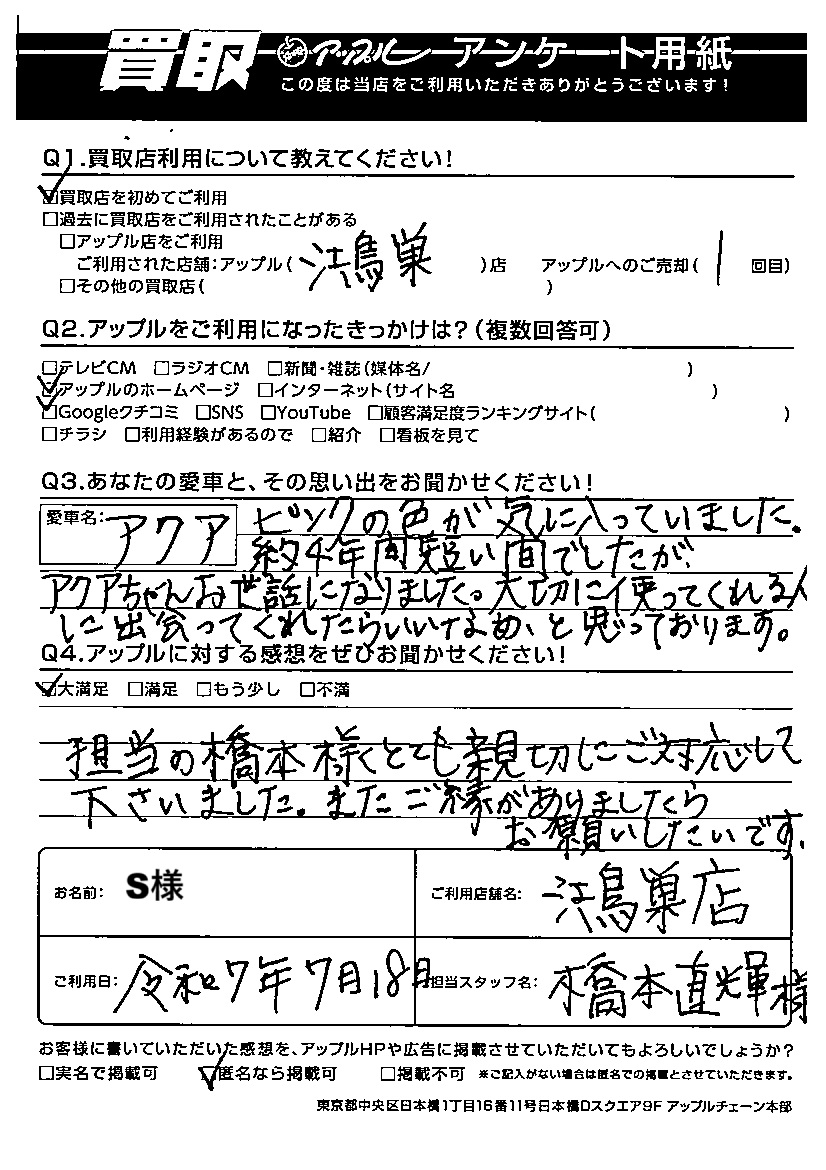 買取 アップル アンケート用紙
この度は当店をご利用いただきありがとうございます!
Q1.買取店利用について教えてください!
☑買取店を初めてご利用
□過去に買取店をご利用されたことがある
□アップル店をご利用
ご利用された店舗:アップル( 鴻巣 )店 アップルへのご売却( 1 回目)
□その他の買取店( )
Q2.アップルをご利用になったきっかけは?(複数回答可)
□テレビCM □ラジオCM □新聞・雑誌(媒体名/ )
☑アップルのホームページ □インターネット(サイト名 )
☑Googleクチコミ □SNS □YouTube □顧客満足度ランキングサイト( )
□チラシ □利用経験があるので □紹介 □看板を見て
Q3.あなたの愛車と、その思い出をお聞かせください!
愛車名: アクア ピンクの色が気に入っていました。
約4年間短い間でしたが、
アクアちゃんお世話になりました。大切に使ってくれる人
に出会ってくれたらいいなぁ、と思っております。
Q4.アップルに対する感想をぜひお聞かせください!
☑大満足 □満足 □もう少し □不満
担当の橋本様とても親切にご対応して
下さいました。またご縁がありましたら
お願いしたいです。
お名前: S様 ご利用店舗名: 鴻巣店
ご利用日: 令和7年7月18日 担当スタッフ名: 橋本直輝様
お客様に書いていただいた感想を、アップルHPや広告に掲載させていただいてもよろしいでしょうか?
□実名で掲載可 ☑匿名なら掲載可 □掲載不可 ※ご記入がない場合は匿名での掲載とさせていただきます。
東京都中央区日本橋1丁目16番11号日本橋Dスクエア9F アップルチェーン本部